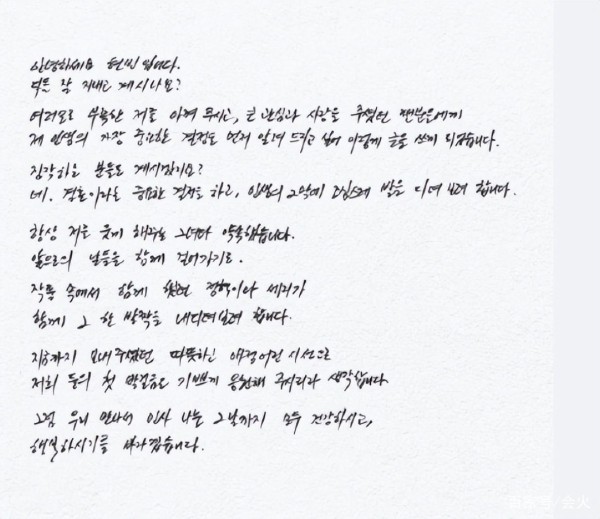 안녕하세요 현빈입니다.
다들 잘 지내고 계시나요?
여러모로 부족한 저를 아껴 주시고, 큰 관심과 사랑을 주셨던 팬분들에게
제 인생의 가장 중요한 결정을 먼저 알려 드리고 싶어 이렇게 글을 쓰게 되었습니다.
짐작하는 분들도 계시겠지요?
네. 결혼이라는 중요한 결정을 하고, 인생의 2막에 조심스레 발을 디뎌 보려 합니다.
항상 저를 웃게 해주는 그녀와 약속했습니다.
앞으로의 날들을 함께 걸어가기로.
작품 속에서 함께 했던 정혁이와 세리가
함께 그 한 발짝을 내디뎌보려 합니다.
지금까지 보내주셨던 따뜻하신 애정어린 시선으로
저희 둘의 첫 발걸음도 기쁘게 응원해 주시리라 생각합니다
그럼 우리 만나서 인사 나눌 그날까지 모두 건강하시고,
행복하시기를 바라겠습니다.